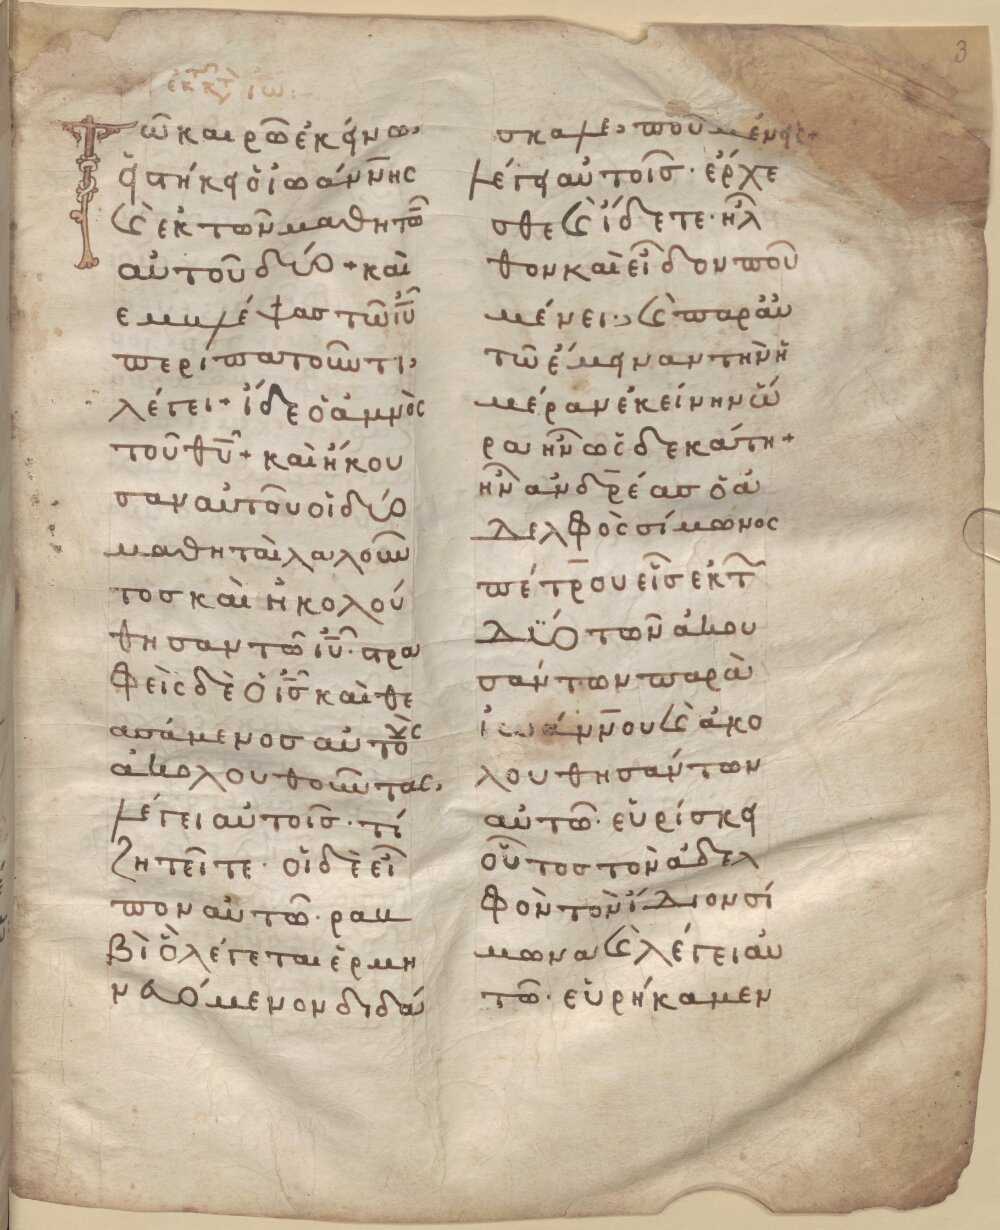 3
ἐκ τοῦ κτ ἰω
Τῶ καιρῶ ἐκείνω,
εἱστήκει ὁ ἰωάννης
καὶ ἐκ τῶν μαθητῶν
αὐτοῦ δύο + καὶ
εμπλέψας τῶ ἰῦ
περιπατοῦντι,
λέγει + ἴδε ὁ ἀμνὸς
τοῦ θῦ + καὶ ἤκου
σαν αὐτοῦ οἱ δύο
μαθηταὶ λαλοῦν
τος καὶ ἠκολού
θησαν τῶ ἰῦ · στρα
φεὶς δὲ ὁ ἰς καὶ θε
ασάμενος αὐτοὺς
ἀκολουθοῦντας,
λέγει αὐτοῖς · τί
ζητεῖτε · οἱ δὲ εἶ
πον αὐτῶ · ραβ
βὶ ὃ λέγεται ἑρμη
νευόμενον διδά
σκαλε, ποῦ μένεις +
λέγει αὐτοῖς · ἔρχε
σθε καὶ ἴδετε · ἦλ
θον καὶ εἶδον ποῦ
μένει, καὶ παρ αὐ
τῶ ἔμειναν τὴν ἡ
μέραν ἐκείνην ὥ
ρα ἦν ὡς δεκάτη +
ἦν ἀνδρέας ὁ ἀ
δελφὸς σίμωνος
πέτρου εἷς ἐκ τῶν
δύο τῶν ἀκου
σάντων παρὰ
ἰωάννου καὶ ἀκο
λουθησάντων
αὐτῶ · εὑρίσκει
οὗτος τὸν ἀδελ
φὸν τὸν ἴδιον σί
μωνα καὶ λέγει αὐ
τῶ · εὑρήκαμεν